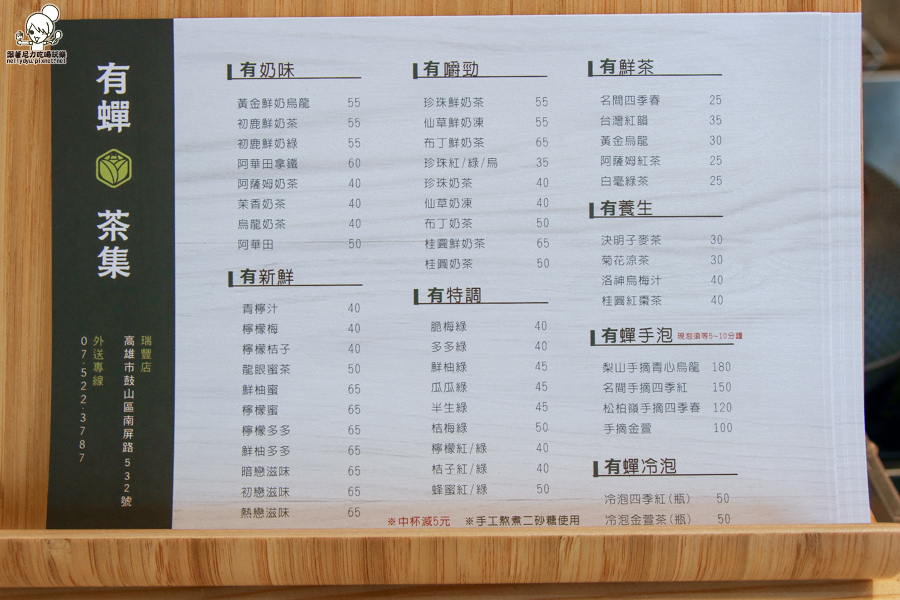 跟著尼力吃喝玩樂
nellydyu.pixnet.net
有蟬
茶集
瑞豐店
高雄市鼓山區南屏路532號
外送專線
07-522-3787
有奶味
黃金鮮奶烏龍 55
初鹿鮮奶茶 55
初鹿鮮奶綠 55
阿華田拿鐵 60
阿薩姆奶茶 40
茉香奶茶 40
烏龍奶茶 40
阿華田 50
有新鮮
青檸汁 40
檸檬梅 40
檸檬桔子 40
龍眼蜜茶 50
鮮柚蜜 65
檸檬蜜 65
檸檬多多 65
鮮柚多多 65
暗戀滋味 65
初戀滋味 65
熱戀滋味 65
有嚼勁
珍珠鮮奶茶 55
仙草鮮奶凍 55
布丁鮮奶茶 65
珍珠紅/綠/烏 35
珍珠奶茶 40
仙草奶凍 40
布丁奶茶 50
桂圓鮮奶茶 65
桂圓奶茶 50
有特調
脆梅綠 40
多多綠 40
鮮柚綠 45
瓜瓜綠 45
半生綠 45
桔梅綠 50
檸檬紅/綠 40
桔子紅/綠 40
蜂蜜紅/綠 50
※中杯減5元 ※手工熬煮二砂糖使用
有鮮茶
名間四季春 25
台灣紅韻 35
黃金烏龍 30
阿薩姆紅茶 25
白毫綠茶 25
有養生
決明子麥茶 30
菊花涼茶 30
洛神烏梅汁 40
桂圓紅棗茶 40
有蟬手泡 現泡須等5~10分鐘
梨山手摘青心烏龍 180
名間手摘四季紅 150
松柏嶺手摘四季春 120
手摘金萱 100
有蟬冷泡
冷泡四季紅(瓶) 50
冷泡金萱茶(瓶) 50